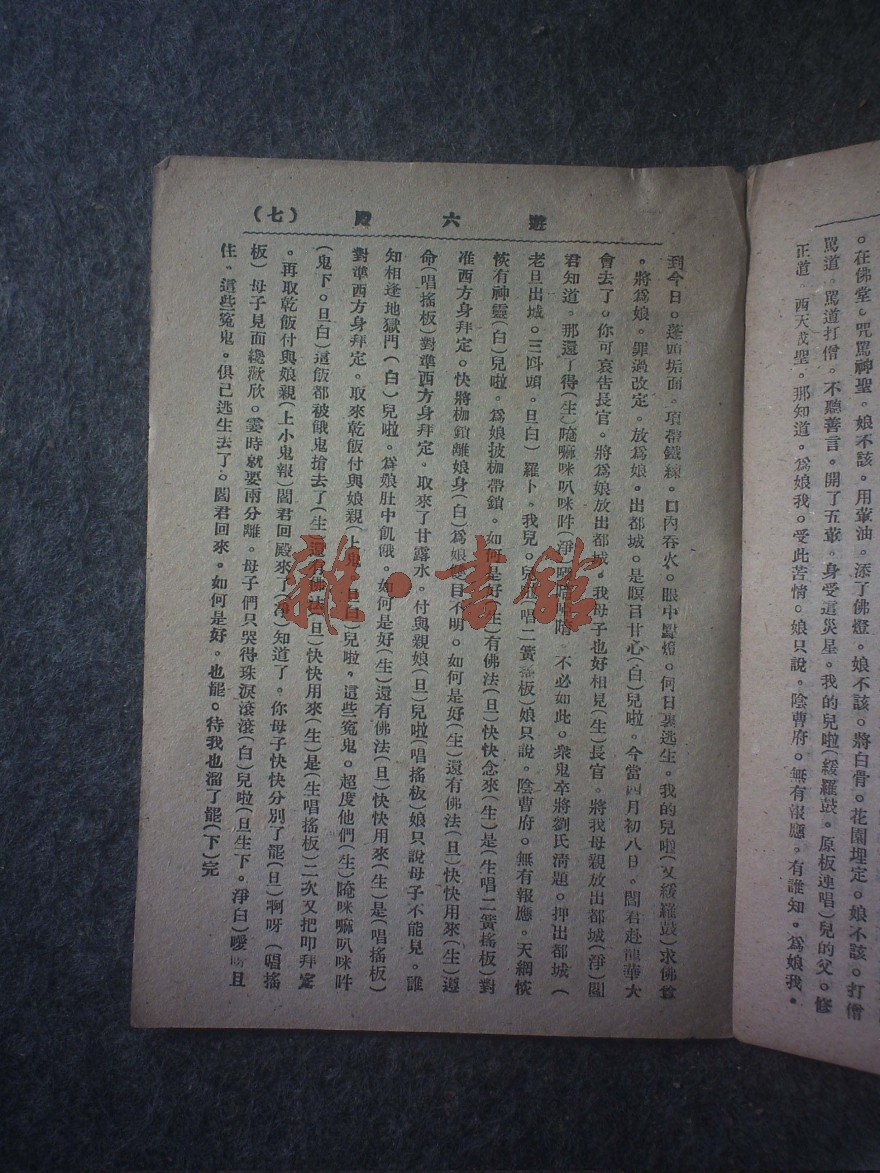 。在佛堂。咒罵神聖。娘不該。用葷油。添了佛燈。娘不該。將白骨。花園埋定。娘不該。打僧
罵道。罵道打僧。不聽善言。開了五葷。身受這災星。我的兒啦(緩羅鼓。原板連唱)兒的父。修
正道。西天成聖。那知道。爲娘我。受此苦情。娘只說。陰曹府。無有報應。有誰知。爲娘我。
遊六殿 (七)
到今日。蓬頭垢面。項帶鐵練。口內吞火。眼中點燈。何日裏逃生。我的兒啦(又緩羅鼓)求佛爺
。將爲娘。罪過改定。放爲娘。出都城。是瞑目甘心(白)兒啦。今當四月初八日。閻君赴龍華大
會去了。你可哀告長官。將爲娘放出都城。我母子也好相見(生)長官。將我母親放出都城(淨)閻
君知道。那還了得(生)唵嘛咪叭咪吽(淨)噯唷唷唷。不必如此。衆鬼卒將劉氏淸題。押出都城(
老旦出城。三呌頭。旦白)羅卜。我兒。兒吓(唱二簧搖板)娘只說。陰曹府。無有報應。天網恢
恢有神靈(白)兒啦。爲娘披枷帶鎖。如何是好(生)有佛法(旦)快快念來(生)是(生唱二簧搖板)對
准西方身拜定。快將枷鎖離娘身(白)爲娘雙目不明。如何是好(生)還有佛法(旦)快快用來(生)遵
命(唱搖板)對準西方身拜定。取來了甘露水。付與親娘(旦)兒啦(唱搖板)娘只說母子不能見。誰
知相逢地獄門(白)兒啦。爲娘肚中飢餓。如何是好(生)還有佛法(旦)快快用來(生)是(唱搖板)
對準西方身拜定。取來乾飯付與娘親(上鬼。旦白)兒啦。這些寃鬼。超度他們(生)唵咪嘛叭咪吽
(鬼下。旦白)這飯都被餓鬼搶去了(生)還有佛法(旦)快快用來(生)是(生唱搖板)二次又把叩拜定
。再取乾飯付與娘親(上小鬼報)閻君回殿來了(淨)知道了。你母子快快分別了罷(旦)啊呀(唱搖
板)母子見面纔歡欣。霎時就要兩分離。母子們只哭得珠淚滾滾(白)兒啦(旦生下。淨白)噯呀且
住。這些寃鬼。俱已逃生去了。閻君回來。如何是好。也罷。待我也溜了罷(下)完
雜·書館